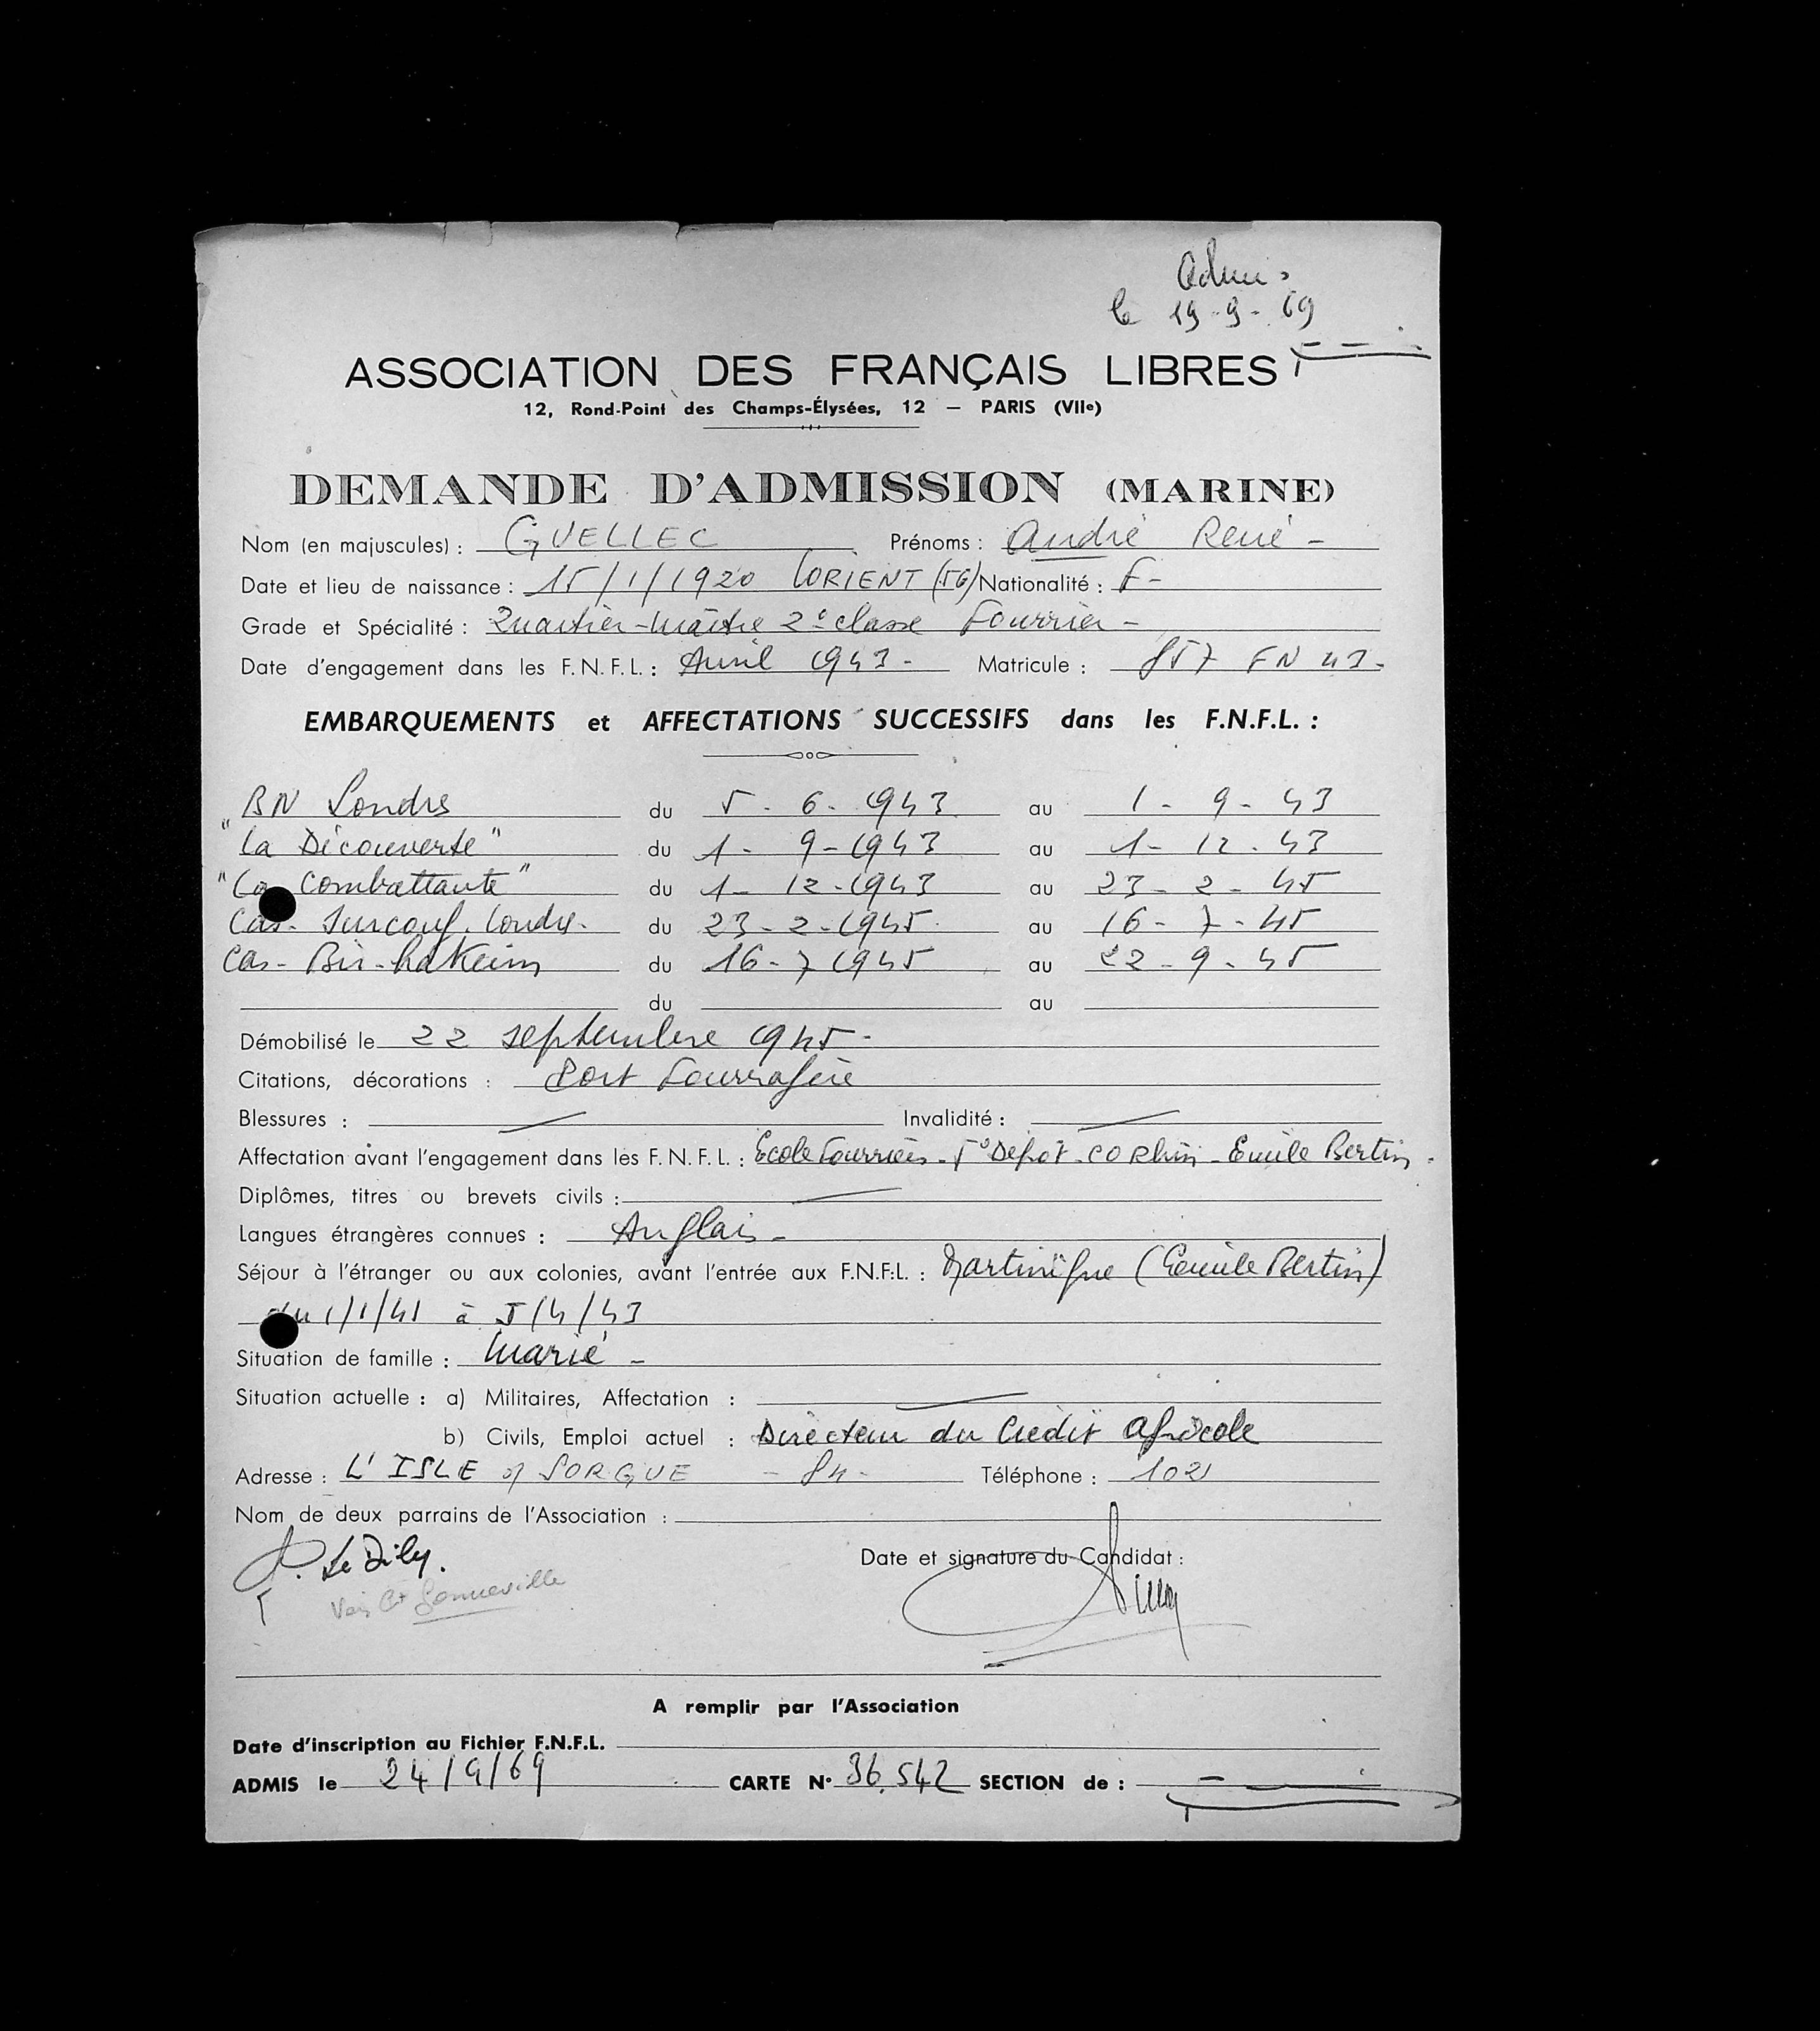 Admis
le 19-9-69
ASSOCIATION DES FRANÇAIS LIBRES
12, Rond-Point des Champs-Élysées, 12 — PARIS (VIIe)
DEMANDE D'ADMISSION (MARINE)
Nom (en majuscules) : GUELLEC Prénoms : André René -
Date et lieu de naissance : 15/1/1920 LORIENT (56) Nationalité : F-
Grade et Spécialité : Quartier-Maître 2e classe Fourrier -
Date d'engagement dans les F.N.F.L. : Avril 1943 - Matricule : 857 FN 43.
EMBARQUEMENTS et AFFECTATIONS SUCCESSIFS dans les F.N.F.L. :
BN Londres du 5 - 6 - 1943 au 1 - 9 - 43
"La Découverte" du 1 - 9 - 1943 au 1 - 12 - 43
"La Combattante" du 1 - 12 - 1943 au 23 - 2 - 45
Cas. Surcouf. Londres. du 23 - 2 - 1945 au 16 - 7 - 45
Cas - Bir-hakeim du 16 - 7 1945 au 22 - 9 - 45
du au
Démobilisé le 22 septembre 1945 -
Citations, décorations : Port Fourragère
Blessures : Invalidité :
Affectation avant l'engagement dans les F.N.F.L. : Ecole Fourriers - 5° Dépôt - CO Rhin - Emile Bertin.
Diplômes, titres ou brevets civils :
Langues étrangères connues : Anglais -
Séjour à l'étranger ou aux colonies, avant l'entrée aux F.N.F.L. : Martinique (Emile Bertin)
du 1/1/41 à 5/4/43
Situation de famille : Marié -
Situation actuelle : a) Militaires, Affectation :
b) Civils, Emploi actuel : Directeur du Crédit Agricole
Adresse : L'ISLE s/ SORGUE - 84 - Téléphone : 102
Nom de deux parrains de l'Association :
Date et signature du Candidat :
Voir Ct Gonneville
A remplir par l'Association
Date d'inscription au Fichier F.N.F.L.
ADMIS le 24/9/69 CARTE N° 36.542 SECTION de :